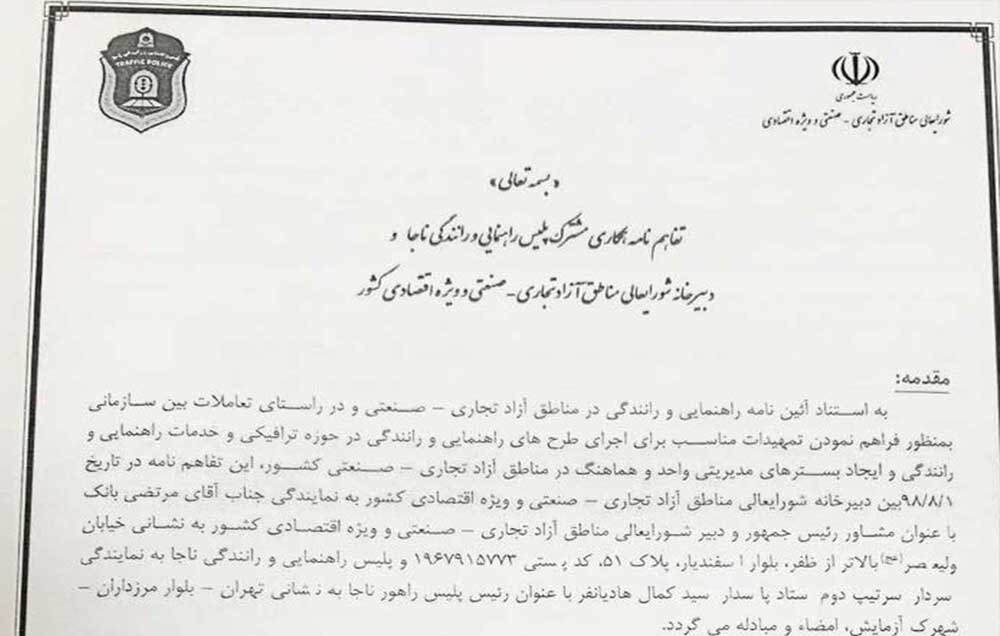 TRAFFIC POLICE
ریاست جمهوری
شورایعالی مناطق آزاد تجاری - صنعتی و ویژه اقتصادی
«بسمه تعالی»
تفاهم نامه همکاری مشترک پلیس راهنمایی و رانندگی ناجا و
دبیرخانه شورایعالی مناطق آزاد تجاری - صنعتی و ویژه اقتصادی کشور
مقدمه:
به استناد آئین نامه راهنمایی و رانندگی در مناطق آزاد تجاری – صنعتی و در راستای تعاملات بین سازمانی
بمنظور فراهم نمودن تمهیدات مناسب برای اجرای طرح های راهنمایی و رانندگی در حوزه ترافیکی و خدمات راهنمایی و
رانندگی و ایجاد بسترهای مدیریتی واحد و هماهنگ در مناطق آزاد تجاری – صنعتی کشور، این تفاهم نامه در تاریخ
۹۸/۸/۱بین دبیرخانه شورایعالی مناطق آزاد تجاری – صنعتی و ویژه اقتصادی کشور به نمایندگی جناب آقای مرتضی بانک
با عنوان مشاور رئیس جمهور و دبیر شورایعالی مناطق آزاد تجاری – صنعتی و ویژه اقتصادی کشور به نشانی خیابان
ولیعصر(عج) بالاتر از ظفر، بلوار اسفندیار، پلاک ۵۱، کد پستی ۱۹۶۷۹۱۵۷۷۳ و پلیس راهنمایی و رانندگی ناجا به نمایندگی
سردار سرتیپ دوم ستاد پاسدار سید کمال هادیانفر با عنوان رئیس پلیس راهور ناجا به نشانی تهران – بلوار مرزداران –
شهرک آزمایش، امضاء و مبادله می گردد.